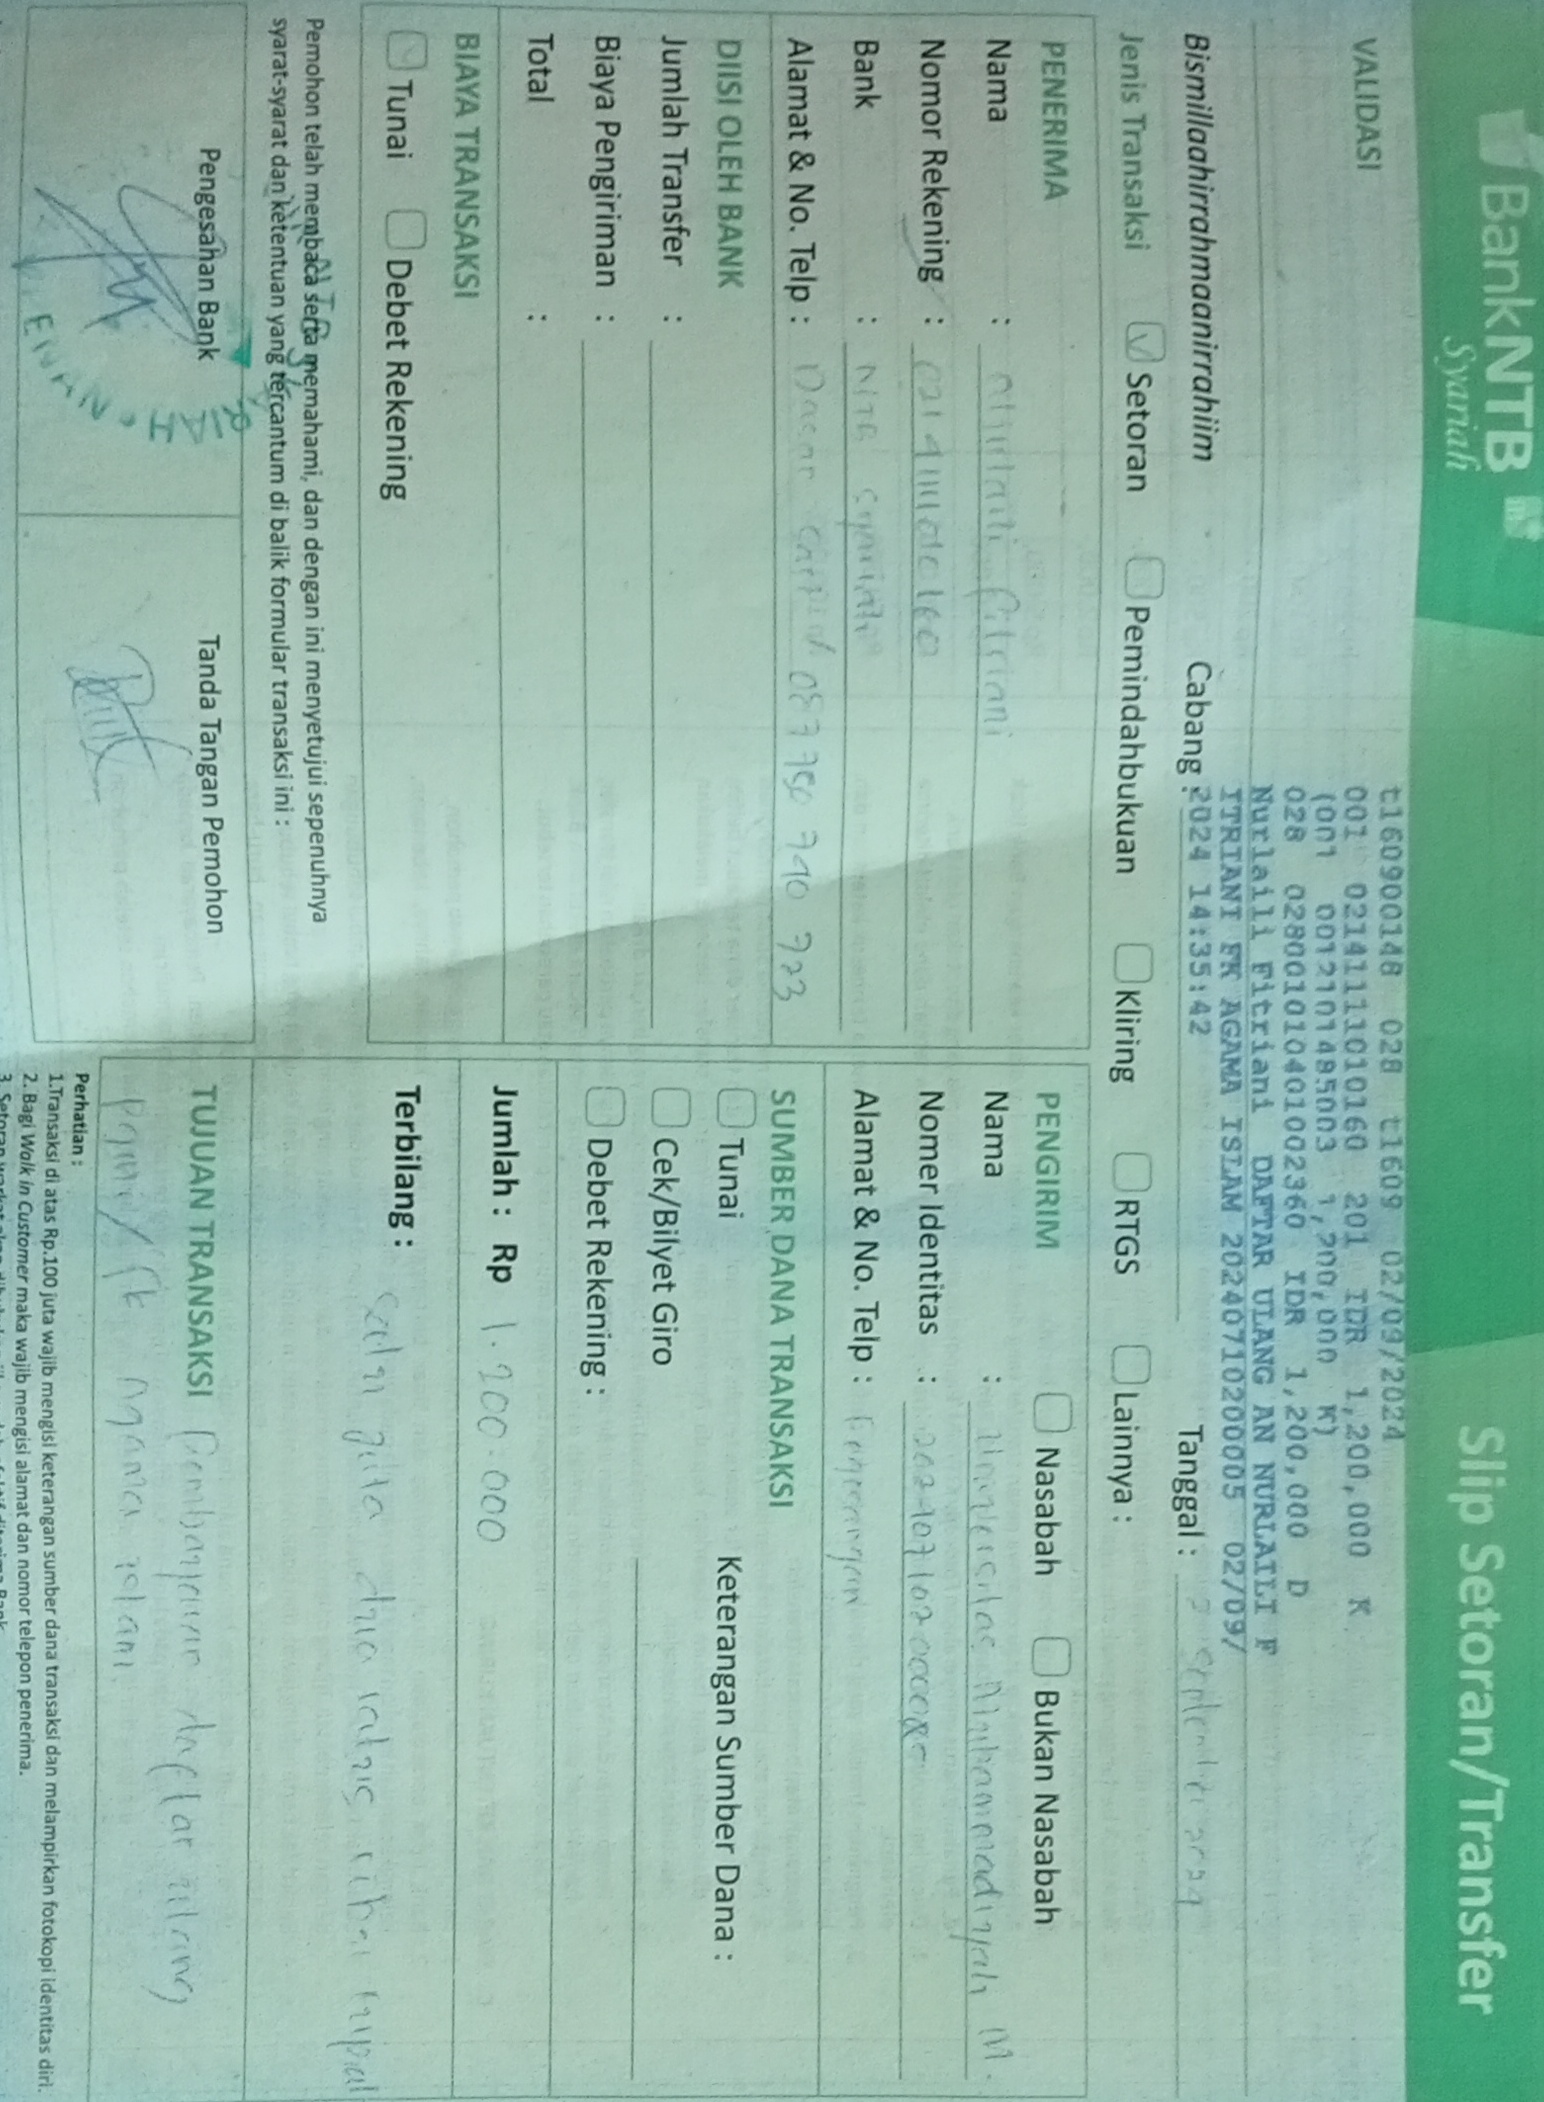 BankNTB
Syariah
Slip Setoran/Transfer
VALIDASI
t160900148 028 t1609 02/09/2024
001 0214111101010160 201 IDR 1,200,000 K
(001 0012101485003 1,200,000 K)
028 0280010104010002360 IDR 1,200,000 D
Nurlaili Fitriani DAFTAR ULANG AN NURLAILI F
ITRIANI FK AGAMA ISLAM 2024071020005 02/09/
2024 14:35:42
Bismillaahirrahmaanirrahiim
Cabang :
Tanggal : 2 September 2024
Jenis Transaksi
Setoran
Pemindahbukuan
Kliring
RTGS
Lainnya :
PENERIMA
Nama : Nurlaili Fitriani
Nomor Rekening :
Bank : NTB Syariah
Alamat & No. Telp : 087 750 740 723
DIISI OLEH BANK
Jumlah Transfer :
Biaya Pengiriman :
Total :
BIAYA TRANSAKSI
Tunai
Debet Rekening
Pemohon telah membaca serta memahami, dan dengan ini menyetujui sepenuhnya
syarat-syarat dan ketentuan yang tercantum di balik formular transaksi ini :
Pengesahan Bank
Tanda Tangan Pemohon
PENGIRIM
Nasabah
Bukan Nasabah
Nama : Universitas Muhammadiyah M.
Nomer Identitas :
Alamat & No. Telp :
SUMBER DANA TRANSAKSI
Tunai
Keterangan Sumber Dana :
Cek/Bilyet Giro
Debet Rekening :
Jumlah : Rp 1.200.000
Terbilang : Satu juta dua ratus ribu rupiah
TUJUAN TRANSAKSI Pembayaran daftar ulang
Agama islam.
Perhatian :
1.Transaksi di atas Rp.100 juta wajib mengisi keterangan sumber dana transaksi dan melampirkan fotokopi identitas diri.
2. Bagi Walk in Customer maka wajib mengisi alamat dan nomor telepon penerima.